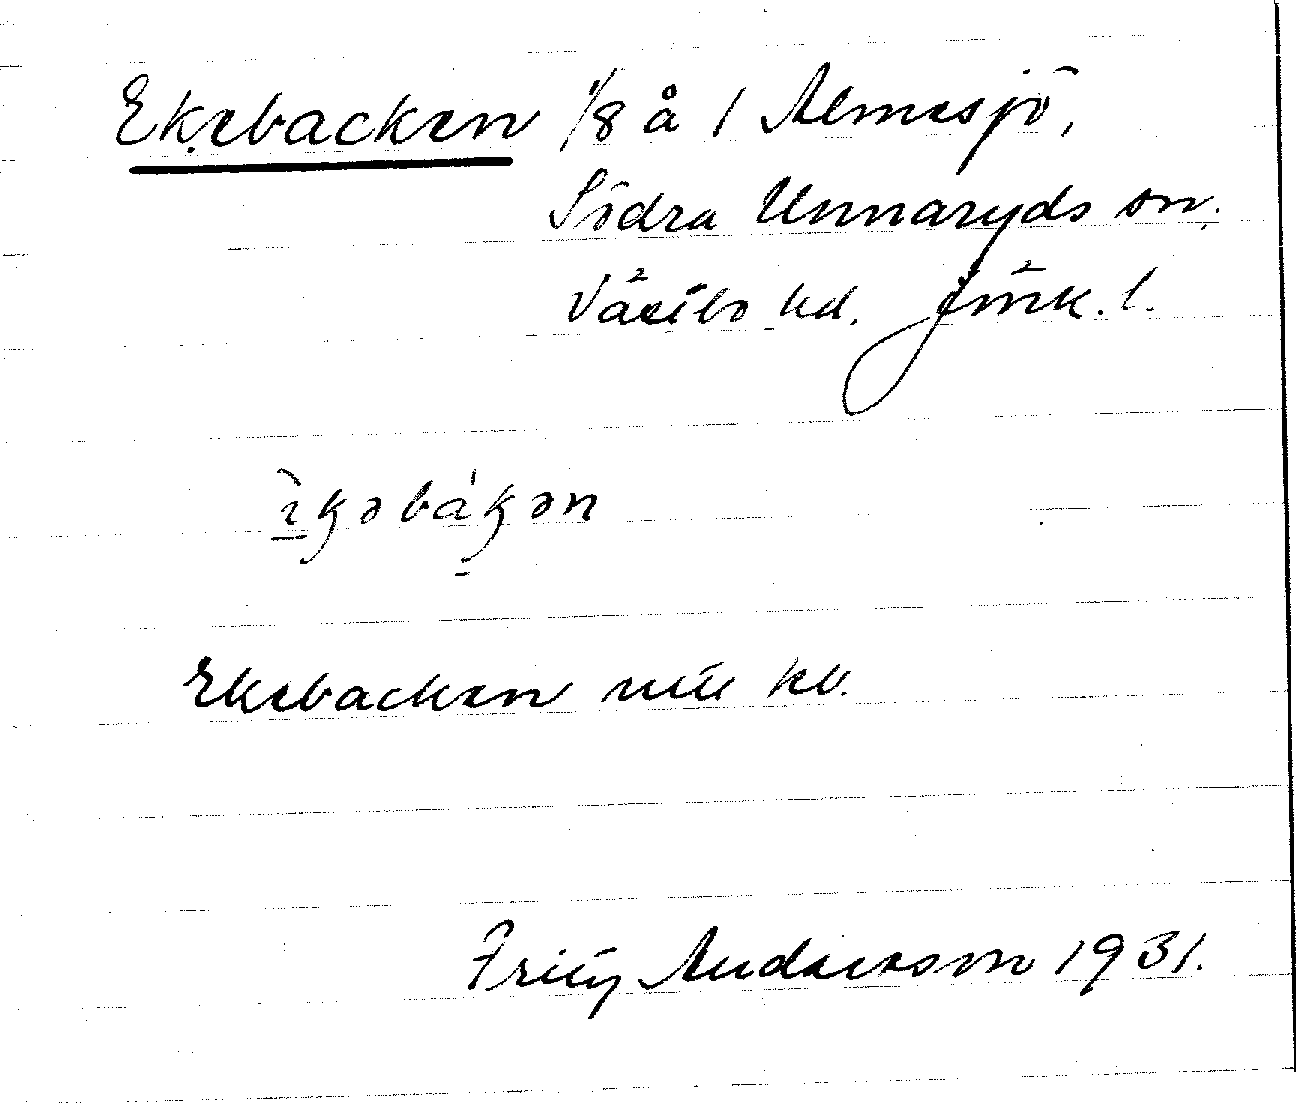 Ekebacken 1/8 å 1 Almesjö,
Södra Unnaryds sn.
Västbo hd. Jönk. l.
Ekebacken kb.
Fritz Andersson 1931.